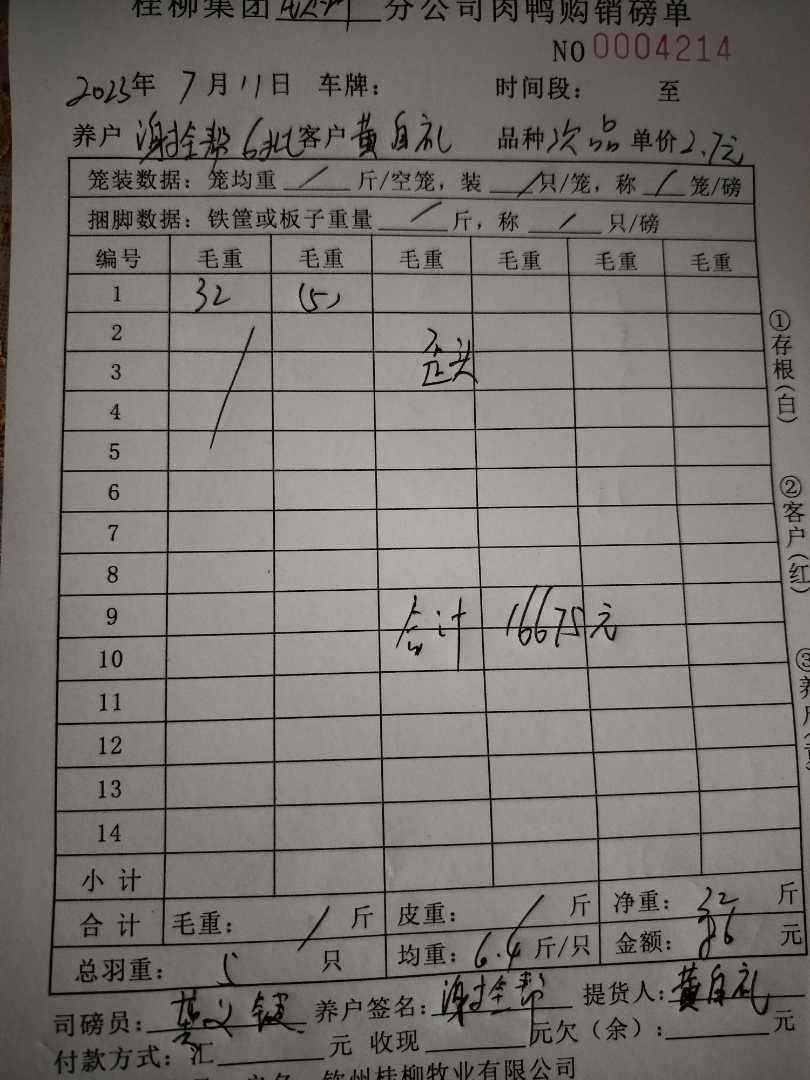 桂柳集团 钦州 分公司肉鸭购销磅单
NO 0004214
2023年 7月11日 车牌： 时间段： 至
养户 谢拴帮 6批 客户 黄自礼 品种 次品 单价 2.7元
笼装数据：笼均重 / 斤/空笼，装 / 只/笼，称 / 笼/磅
捆脚数据：铁筐或板子重量 / 斤，称 / 只/磅
编号 毛重 毛重 毛重 毛重 毛重 毛重
1 32 (5)
2
3 歪头
4
5
6
7
8
9 合计 16675元
10
11
12
13
14
小计
合计 毛重： / 斤 皮重： / 斤 净重： 32 斤
总羽重： 5 只 均重：6.4 斤/只 金额： 86 元
司磅员： 养户签名：谢拴帮 提货人：黄自礼
付款方式：汇 元 收现 元欠（余）： 元
钦州桂柳牧业有限公司
①存根（白）
②客户（红）
③养户